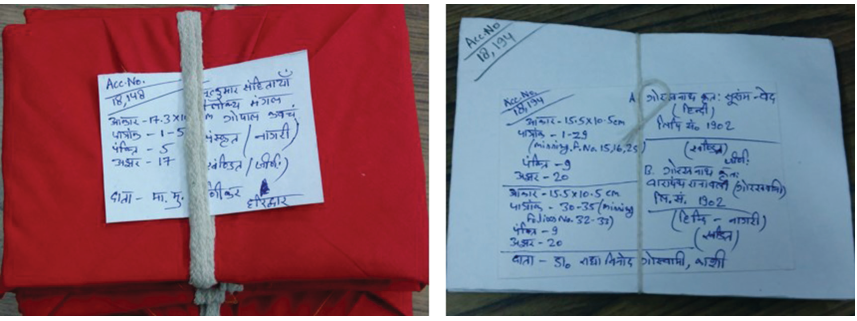 Acc.No.
18,148
कुमार संहितायाँ
त्रैलोक्य मंगल
आकार - 17.3x10 cm गोपाल कवचं
पत्रांक - 1-5 संस्कृत / नागरी
पंक्ति - 5
अक्षर - 17 खंडित / जीर्ण
दाता - मा. मु. कर
हरिद्वार
Acc.No
18,194
Acc.No.
18,194
आकार - 15.5x10.5cm
पत्रांक - 1-29
(missing F.No. 15,16,25)
पंक्ति - 9
अक्षर - 20
आकार - 15.5x10.5 cm
पत्रांक - 30-35 (missing
Folios No. 32-33)
पंक्ति - 9
अक्षर - 20
A. गोरखनाथ कृत: सुक्षम-वेद
(हिन्दी)
लिपि सं० 1902
(खंडित)
जीर्ण
B. गोरखनाथ कृत:
(गोरखवाणी)
लि. सं. 1902
(हिन्दी - नागरी)
(खंडित)
दाता - डा० राधा विनोद गोस्वामी, काशी